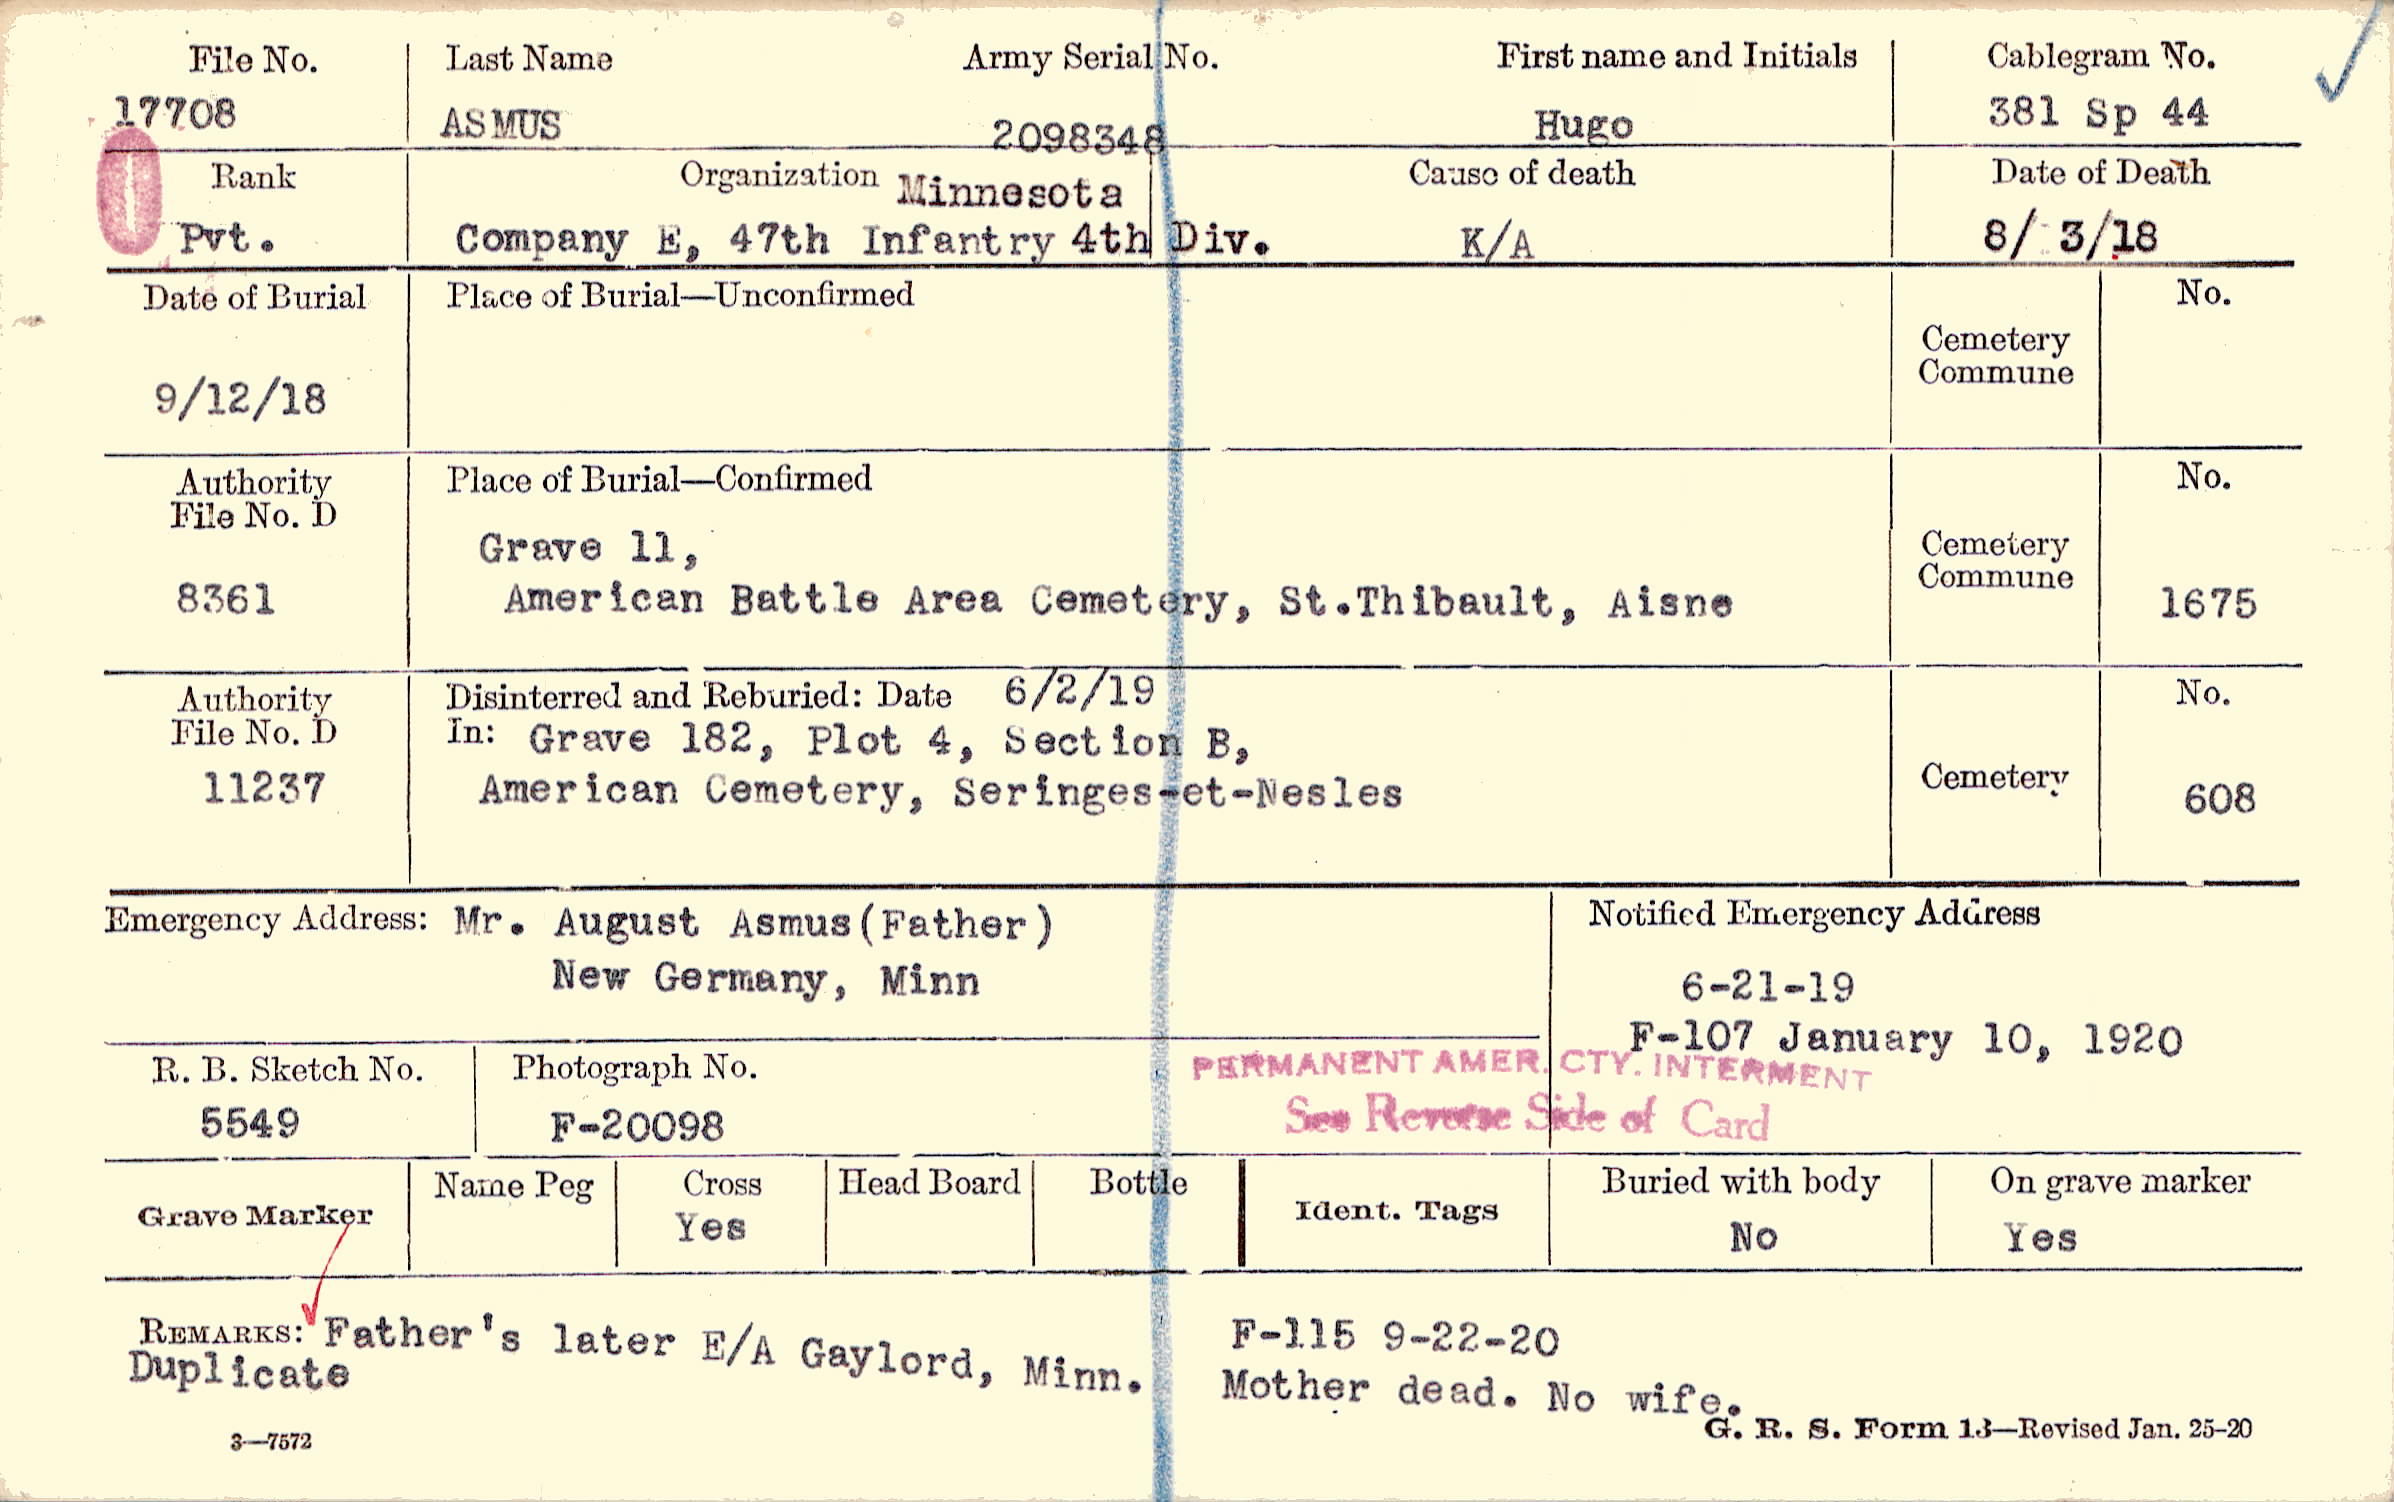 File No. Last Name Army Serial No. First name and Initials Cablegram No.
17708 ASMUS 2098348 Hugo 381 Sp 44
Rank Organization Minnesota Cause of death Date of Death
Pvt. Company E, 47th Infantry 4th Div. K/A 8/ 3/18
Date of Burial Place of Burial—Unconfirmed No.
Cemetery
Commune
9/12/18
Authority Place of Burial—Confirmed No.
File No. D
Grave 11, Cemetery
Commune
8361 American Battle Area Cemetery, St.Thibault, Aisne 1675
Authority Disinterred and Reburied: Date 6/2/19 No.
File No. D In: Grave 182, Plot 4, Section B,
11237 American Cemetery, Seringes-et-Nesles Cemetery 608
Emergency Address: Mr. August Asmus(Father) Notified Emergency Address
New Germany, Minn 6-21-19
F-107 January 10, 1920
R. B. Sketch No. Photograph No. PERMANENT AMER. CTY. INTERMENT
5549 F-20098 See Reverse Side of Card
Grave Marker Name Peg Cross Head Board Bottle Ident. Tags Buried with body On grave marker
Yes No Yes
REMARKS: Father's later E/A Gaylord, Minn. F-115 9-22-20
Duplicate Mother dead. No wife.
3—7572 G. R. S. Form 13—Revised Jan. 25-20